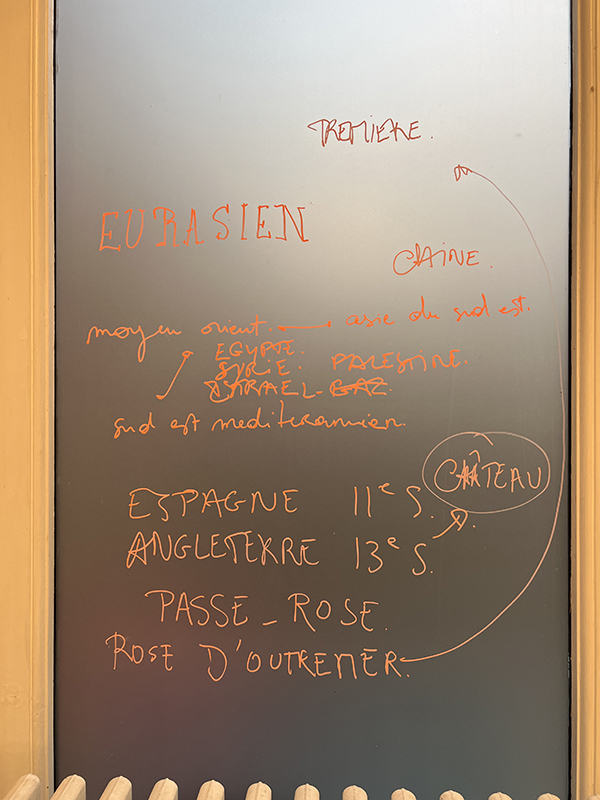 TREMIERE.
EURASIEN
CHINE.
moyen orient. asie du sud est.
EGYPTE.
SYRIE. PALESTINE.
ISRAEL-GAZ.
sud est mediterannien.
CHÂTEAU
ESPAGNE 11e S.
ANGLETERRE 13e S.
PASSE-ROSE.
ROSE D'OUTREMER.